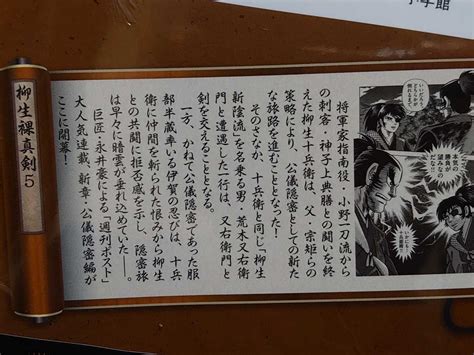 学館
柳生裸真剣5
将軍家指南役・小野一刀流から
の刺客・神子上典膳との闘いを終
えた柳生十兵衛は、父・宗矩らの
策略により、公儀隠密としての新た
な旅路を進むこととなった!
そのさなか、十兵衛と同じ「柳生
新陰流」を名乗る男・荒木又右衛
門と遭遇した一行は、又右衛門と
剣を交えることとなる。
一方、かねて公儀隠密であった服
部半蔵率いる伊賀の忍びは、十兵
衛に仲間を斬られた恨みから柳生
との共闘に拒否感を示し、隠密旅
は早々に暗雲が垂れ込めていた―。
巨匠・永井豪による「週刊ポスト」
大人気連載、新章・公儀隠密編が
ここに開幕!
本気の
勝負が
望みなの
だな!!